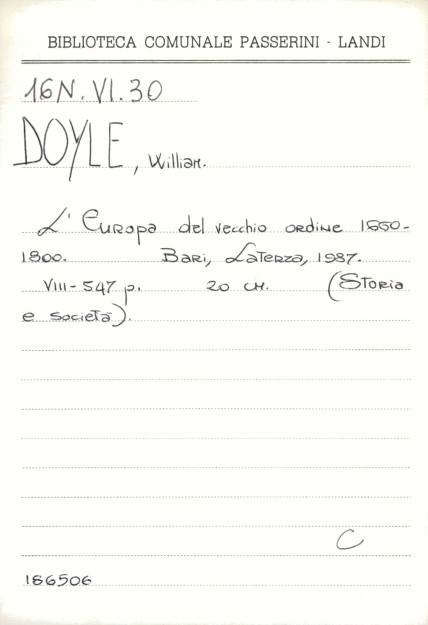 BIBLIOTECA COMUNALE PASSERINI - LANDI
16N.VI.30
DOYLE, William.
L'Europa del vecchio ordine 1660-
1800. Bari, Laterza, 1987.
VIII-547 p. 20 cm. (Storia
e società).
C
186506